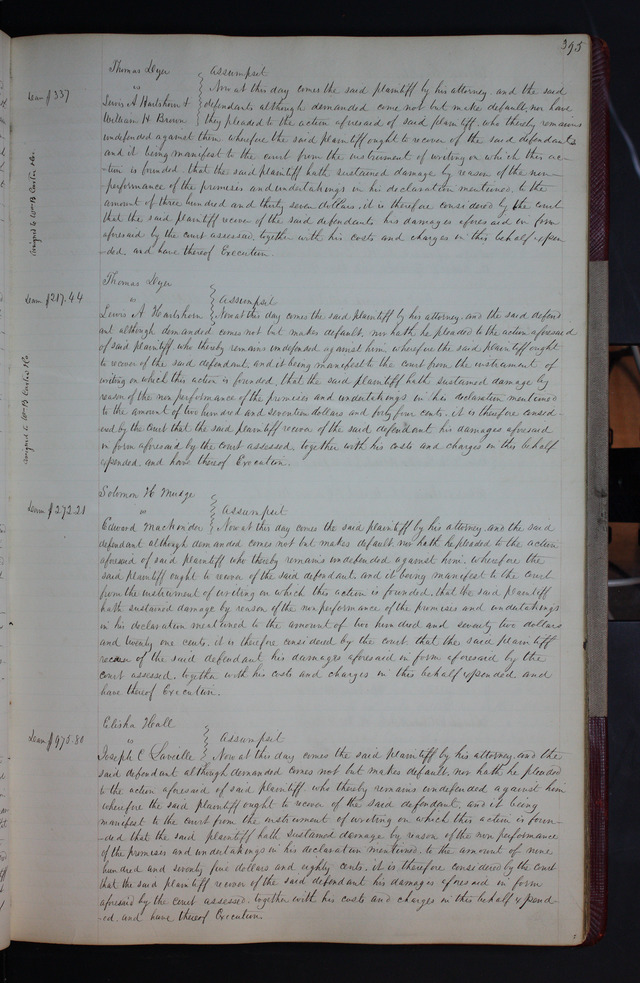 395
Thomas Dyer } Assumpsit
vs } Now at this day comes the said plaintiff by his attorney and the said
Dam $337
Lewis A Hartshorn & } defendants although demanded come not but make default, nor have
William H Brown } they pleaded to the action aforesaid of said plaintiff, who thereby remains
undefended against them wherefore the said plaintiff ought to recover of the said defendants
and it being manifest to the court from the instrument of writing on which this ac-
-tion is founded, that the said plaintiff hath sustained damage by reason of the non
performance of the promises and undertakings in his declaration mentioned, to the
amount of three hundred and thirty seven dollars, it is therefore considered by the court
that the said plaintiff recover of the said defendants his damages aforesaid in form
aforesaid by the court assessed, together with his costs and charges in this behalf expen
-ded, and have thereof Execution.
Assigned to Wm B
Thomas Dyer
Dam $217.44
vs } Assumpsit
Lewis A Hartshorn } Now at this day comes the said plaintiff by his attorney, and the said defend
ant although demanded comes not but makes default, nor hath he pleaded to the action aforesaid
of said plaintiff who thereby remains undefended against him, wherefore the said plaintiff ought
to recover of the said defendant, and it being manifest to the court from the instrument of
writing on which this action is founded, that the said plaintiff hath sustained damage by
reason of the non performance of the promises and undertakings in his declaration mentioned
to the amount of two hundred and seventeen dollars and forty four cents, it is therefore consid-
ered by the court that the said plaintiff recover of the said defendant his damages aforesaid
in form aforesaid by the court assessed, together with his costs and charges in this behalf
expended, and have thereof Execution.
Assigned to Wm B
Solomon H Mudge
Damm $272.21
vs } Assumpsit
Edward Mackender } Now at this day comes the said plaintiff by his attorney, and the said
defendant although demanded comes not but makes default, nor hath he pleaded to the action
aforesaid of said plaintiff who thereby remains undefended against him, wherefore the
said plaintiff ought to recover of the said defendant, and it being manifest to the Court
from the instrument of writing on which this action is founded, that the said plaintiff
hath sustained damage by reason of the non performance of the promises and undertakings
in his declaration mentioned to the amount of two hundred and seventy two dollars
and twenty one cents, it is therefore considered by the court that the said plaintiff
recover of the said defendant his damages aforesaid in form aforesaid by the
court assessed, together with his costs and charges in this behalf expended, and
have thereof Execution.
Elisha Hall
Dam $975.80
vs } Assumpsit
Joseph C } Now at this day comes the said plaintiff by his attorney, and the
said defendant although demanded comes not but makes default, nor hath he pleaded
to the action aforesaid of said plaintiff who thereby remains undefended against him
wherefore the said plaintiff ought to recover of the said defendant, and it being
manifest to the court from the instrument of writing on which this action is foun-
-ded that the said plaintiff hath sustained damage by reason of the non performance
of the promises and undertakings in his declaration mentioned, to the amount of nine
hundred and seventy five dollars and eighty cents, it is therefore considered by the Court
that the said plaintiff recover of the said defendant his damages aforesaid in form
aforesaid by the court assessed, together with his costs and charges in this behalf expend-
-ed, and have thereof Execution.